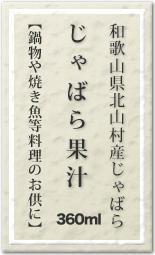 和歌山県北山村産じゃばら
じゃばら果汁
【鍋物や焼き魚等料理のお供に】
360ml